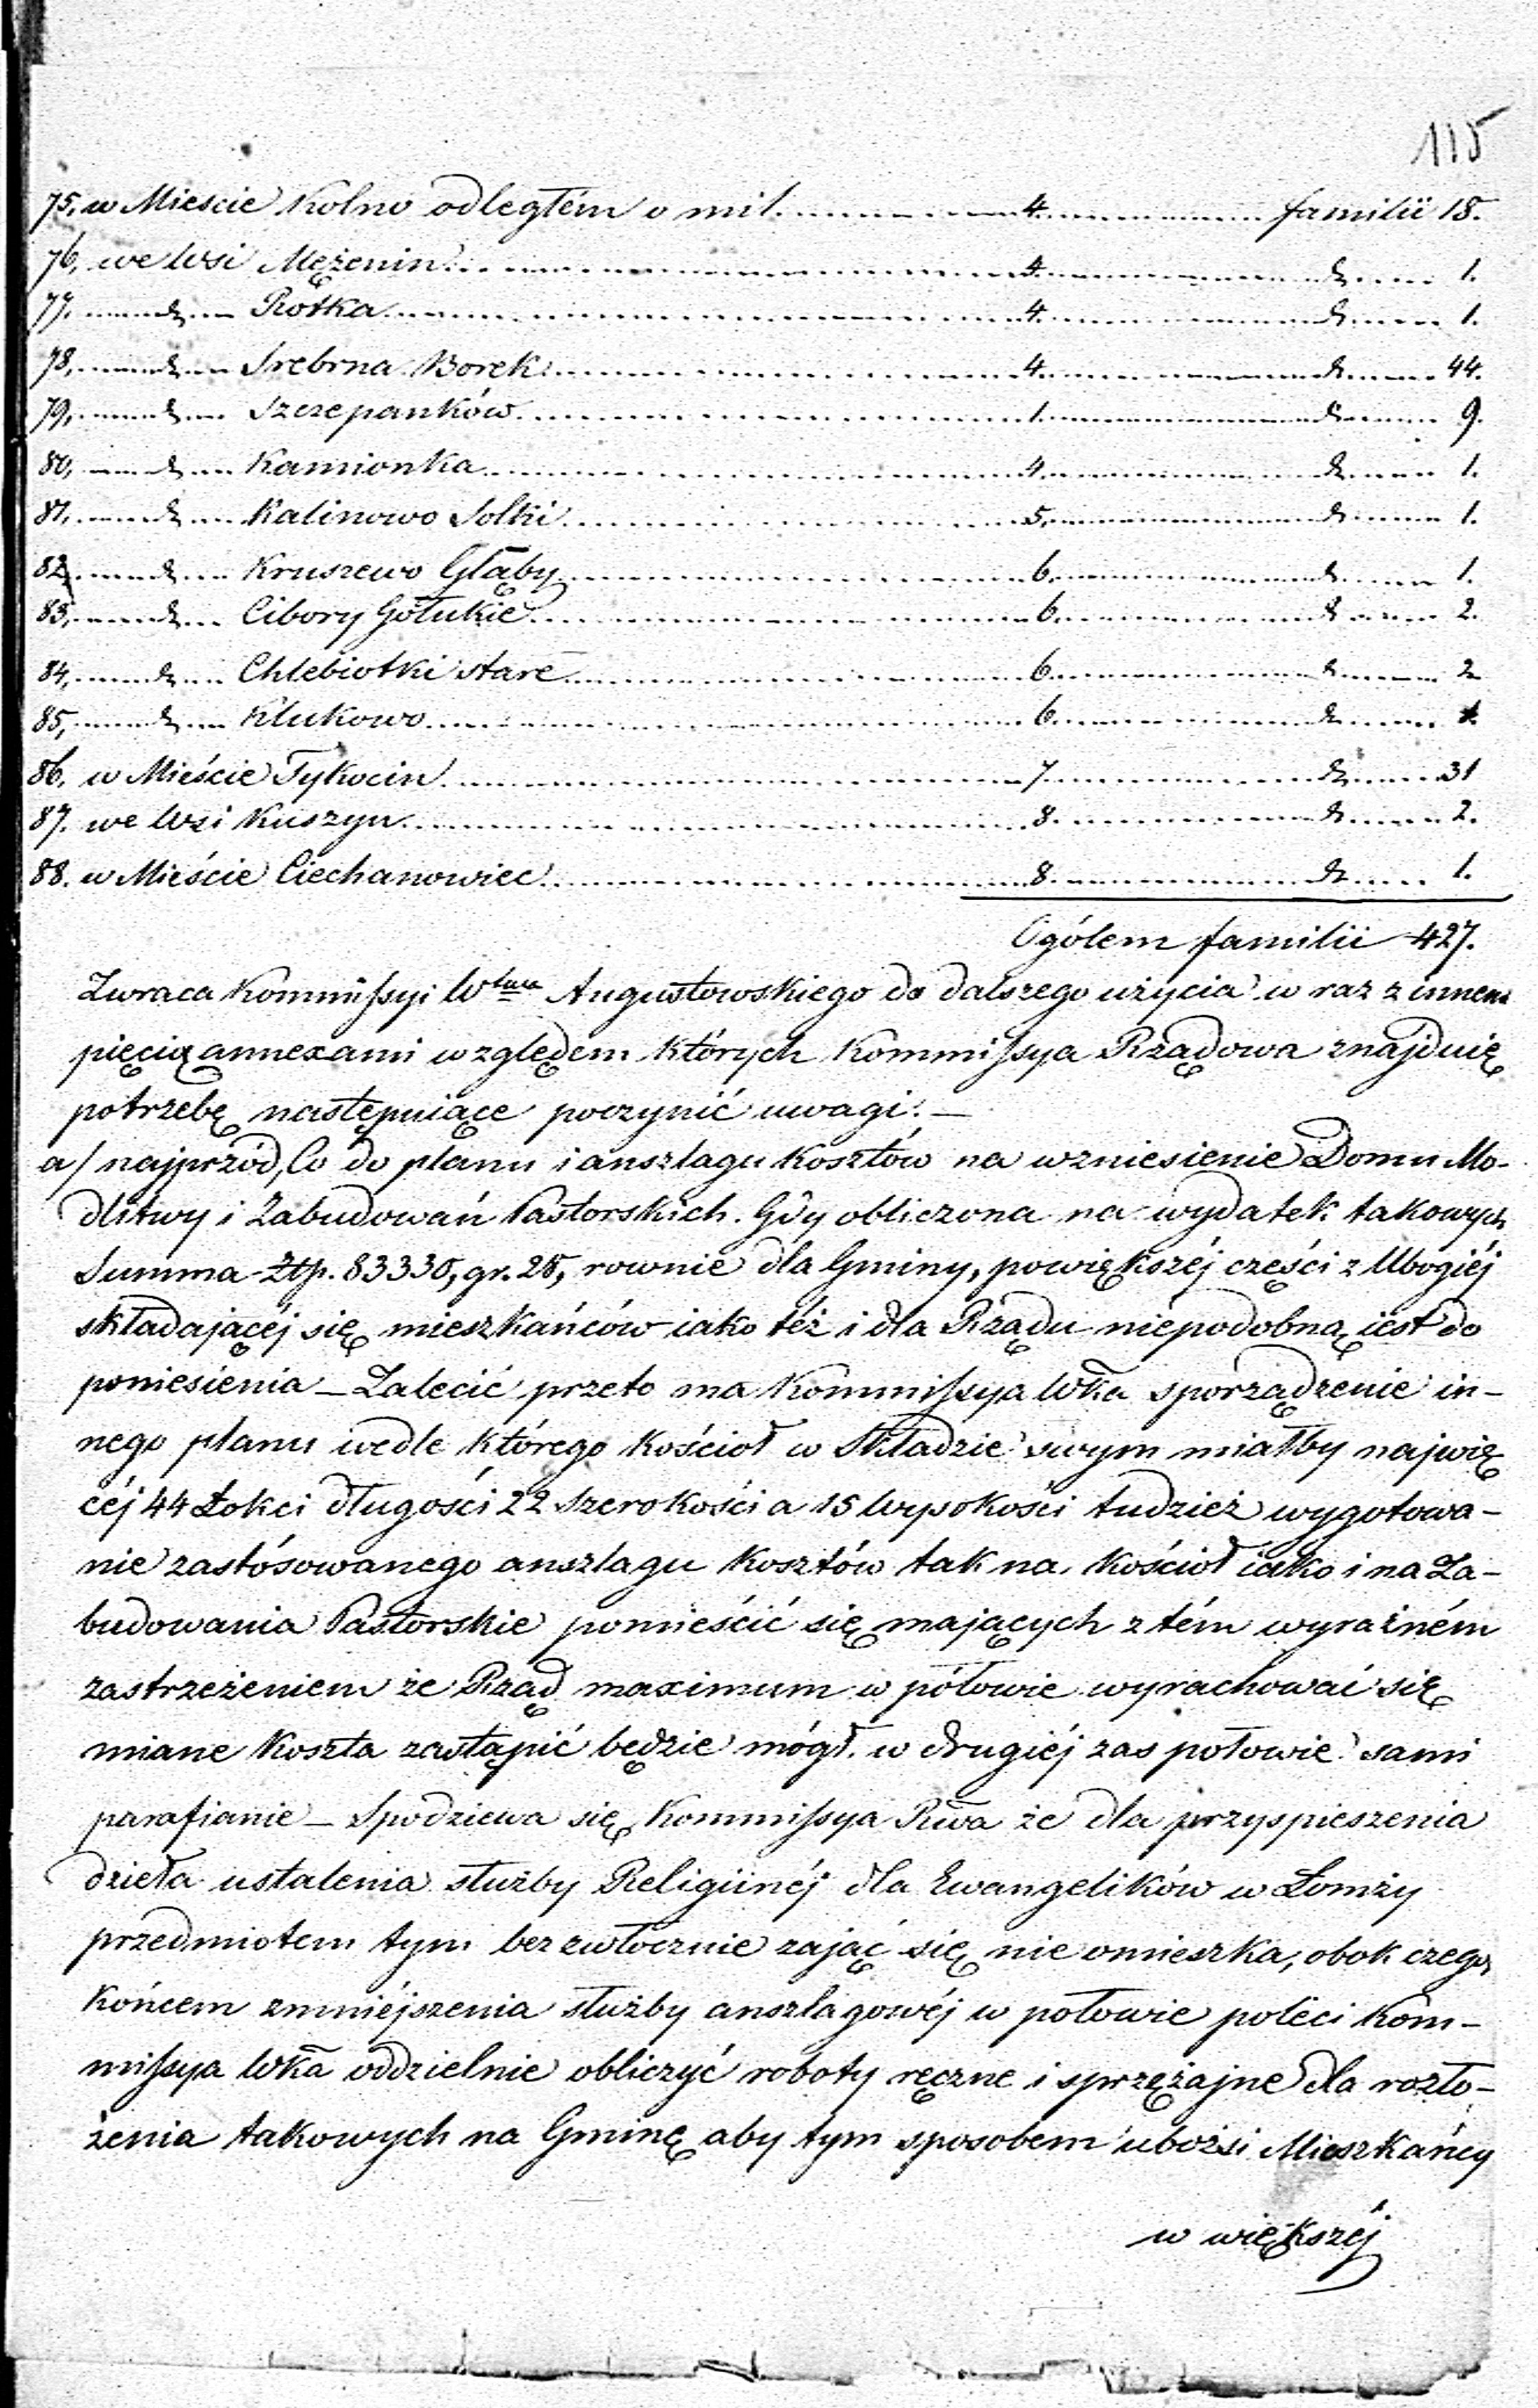 115
75. w Miescie Kolno odległém o mil 4. familii 18.
76, we Wsi Mężenin 4. dt 1.
77. dt Rotka 4. dt 1.
78, dt Srebrna Borek 4. dt 44.
79, dt Szczepanków 1. dt 9.
80, dt Kamionka 4. dt 1.
81, dt Kalinowo Solki 5, dt 1.
82, dt Kruszewo Głąby 6. dt 1.
83, dt Cibory Gołukie 6. dt 2.
84, dt Chlebiotki stare 6. dt 2
85, dt Klukowo 6. dt
86. w Mieście Tykocin 7 dt 31
87. we Wsi Kuszyn 8. dt 2.
88. w Mieście Ciechanowiec 8. dt 1.
Ogólem familii 427.
Zwraca Kommissyi Wtwa Augustowskiego do dalszego użycia w raz z innemi
pięcią annexami względem których Kommissya Rządowa znajduię
potrzebę następuiące poczynić uwagi. —
a/ najprzód, Co do planu i anszlagu kosztów na wzniesienie Domu Mo-
dlitwy i Zabudowań Pastorskich. Gdy obliczona na wydatek takowych
Summa Złp. 83330, gr. 28, rownie dla Gminy, powiększéj części z Ubogiéj
składającéj się mieszkańców iako też i dla Rządu niepodobną iest do
poniesienia — Zalecić przeto ma Kommissya Wka sporządzenie in-
nego planu wedle którego Kościoł w Składzie swym miałby najwię
céj 44 Łokci długości 22 szerokości a 15 Wysokości tudzież wygotowa-
nie zastósowanego anszlagu Kosztów tak na Kościoł iako i na Za-
budowania Pastorskie pomieścić się mających z tém wyraźném
zastrzeżeniem że Rząd maximum w połowie wyrachować się
miane Koszta zastąpić będzie mógł. w drugiéj zas połowie sami
parafianie — Spodziewa się Kommissya Rwa że dla przyspieszenia
dzieła ustalenia służby Religiinéj dla Ewangelików w Łomży
przedmiotem tym bezzwłocznie zająć się nie omieszka, obok czego
Końcem zmniéjszenia służby anszlagowéj w połowie poleci Kom-
missya Wka oddzielnie obliczyć roboty ręczne i sprzężajne dla rozło-
żenia takowych na Gminę aby tym sposobem ubożsi Mieszkańcy
w większéj